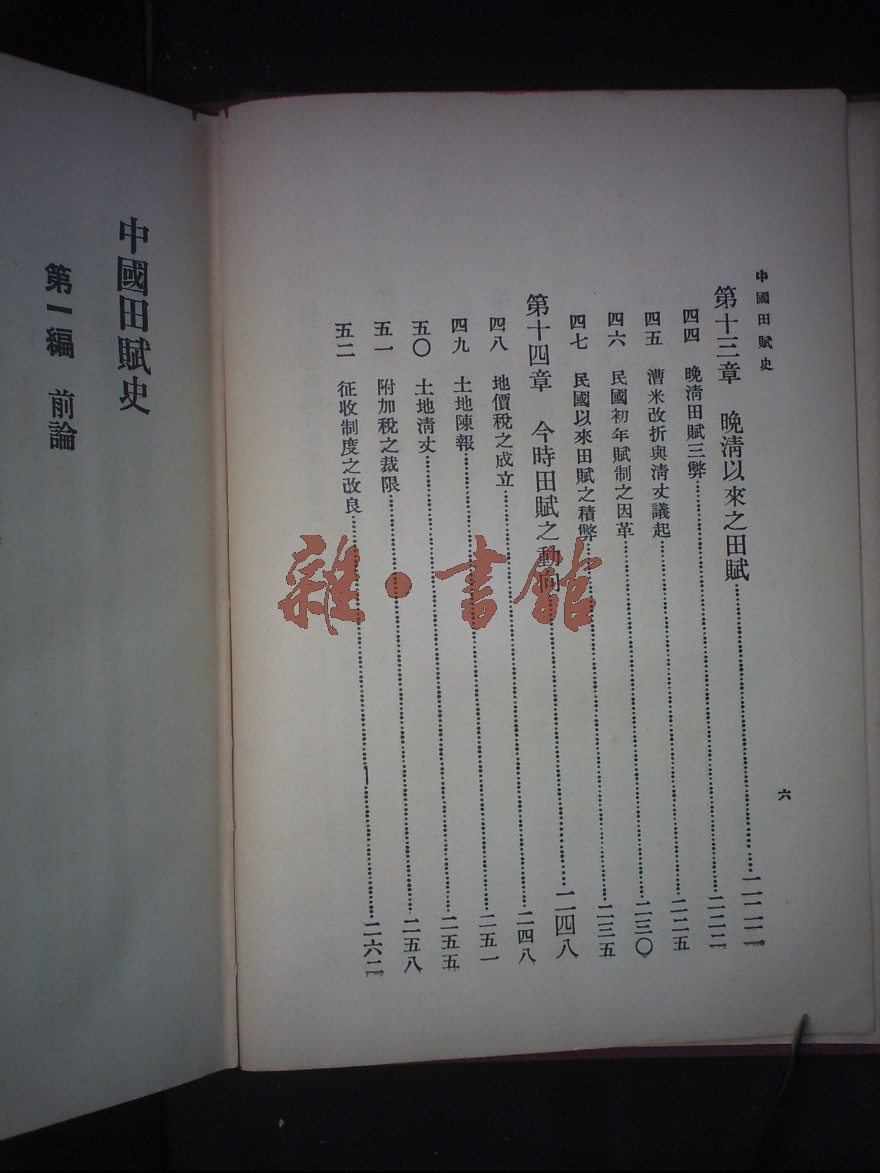 中國田賦史
六
第十三章 晚清以來之田賦……二二二
四四 晚清田賦三弊……二二二
四五 漕米改折與清丈議起……二二五
四六 民國初年賦制之因革……二三〇
四七 民國以來田賦之積弊……二三五
第十四章 今時田賦之動向……二四八
四八 地價稅之成立……二四八
四九 土地陳報……二五一
五〇 土地清丈……二五五
五一 附加稅之裁限……二五八
五二 征收制度之改良……二六二
中國田賦史
第一編 前論
雜·書館